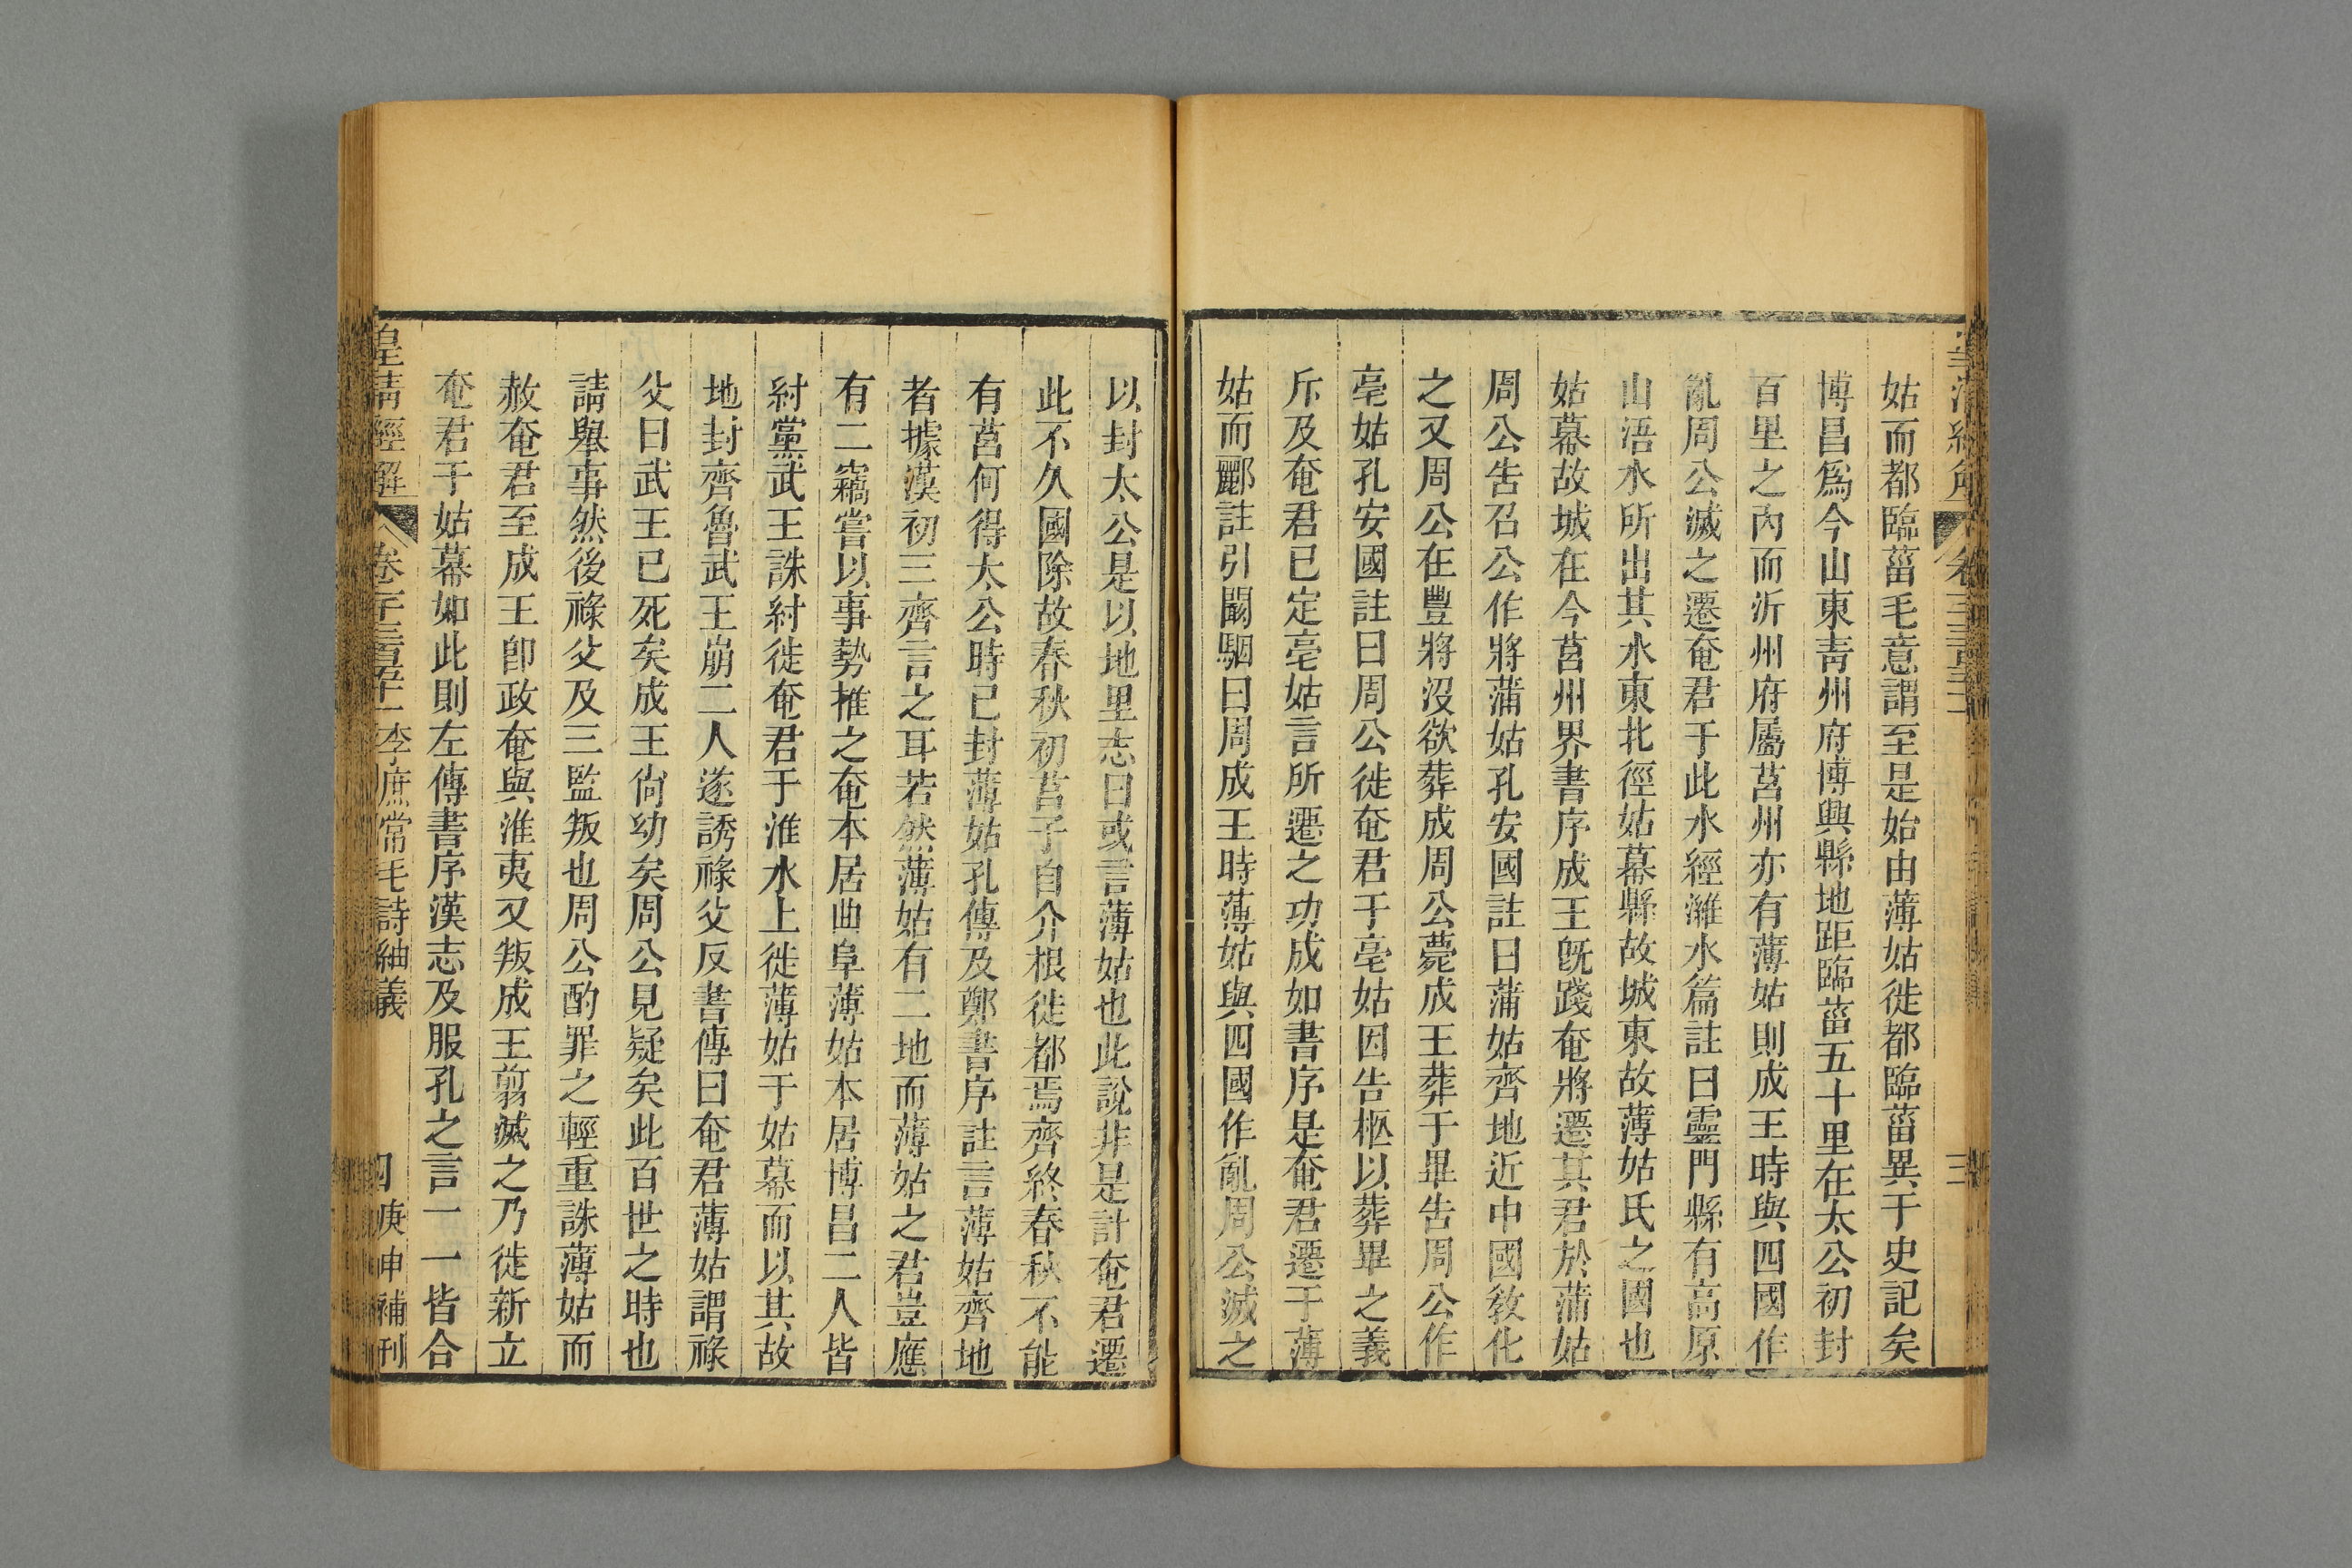 姑而都臨菑毛意謂至是始由薄姑徙都臨菑異于史記矣
博昌爲今山東靑州府博興縣地距臨菑五十里在太公初封
百里之內而沂州府屬莒州亦有薄姑則成王時與四國作
亂周公滅之遷奄君于此水經濰水篇註曰靈門縣有高原
山浯水所出其水東北徑姑幕縣故城東故薄姑氏之國也
姑幕故城在今莒州界書序成王旣踐奄將遷其君於蒲姑
周公告召公作將蒲姑孔安國註曰蒲姑齊地近中國敎化
之又周公在豐將沒欲葬成周公薨成王葬于畢告周公作
亳姑孔安國註曰周公徙奄君于亳姑因告柩以葬畢之義
斥及奄君已定亳姑言所遷之功成如書序是奄君遷于薄
姑而酈註引闞駰曰周成王時薄姑與四國作亂周公滅之
以封太公是以地里志曰或言薄姑也此說非是計奄君遷
此不久國除故春秋初莒子自介根徙都焉齊終春秋不能
有莒何得太公時已封薄姑孔傳及鄭書序註言薄姑齊地
者據漢初三齊言之耳若然薄姑有二地而薄姑之君豈應
有二竊嘗以事勢推之奄本居曲阜薄姑本居博昌二人皆
紂黨武王誅紂徙奄君于淮水上徙薄姑于姑幕而以其故
地封齊魯武王崩二人遂誘祿父反書傳曰奄君薄姑謂祿
父曰武王已死矣成王尙幼矣周公見疑矣此百世之時也
請舉事然後祿父及三監叛也周公酌罪之輕重誅薄姑而
赦奄君至成王卽政奄與淮夷又叛成王翦滅之乃徙新立
奄君于姑幕如此則左傳書序漢志及服孔之言一一皆合
皇淸經解 李庶常毛詩紬義 四 庚申補刊